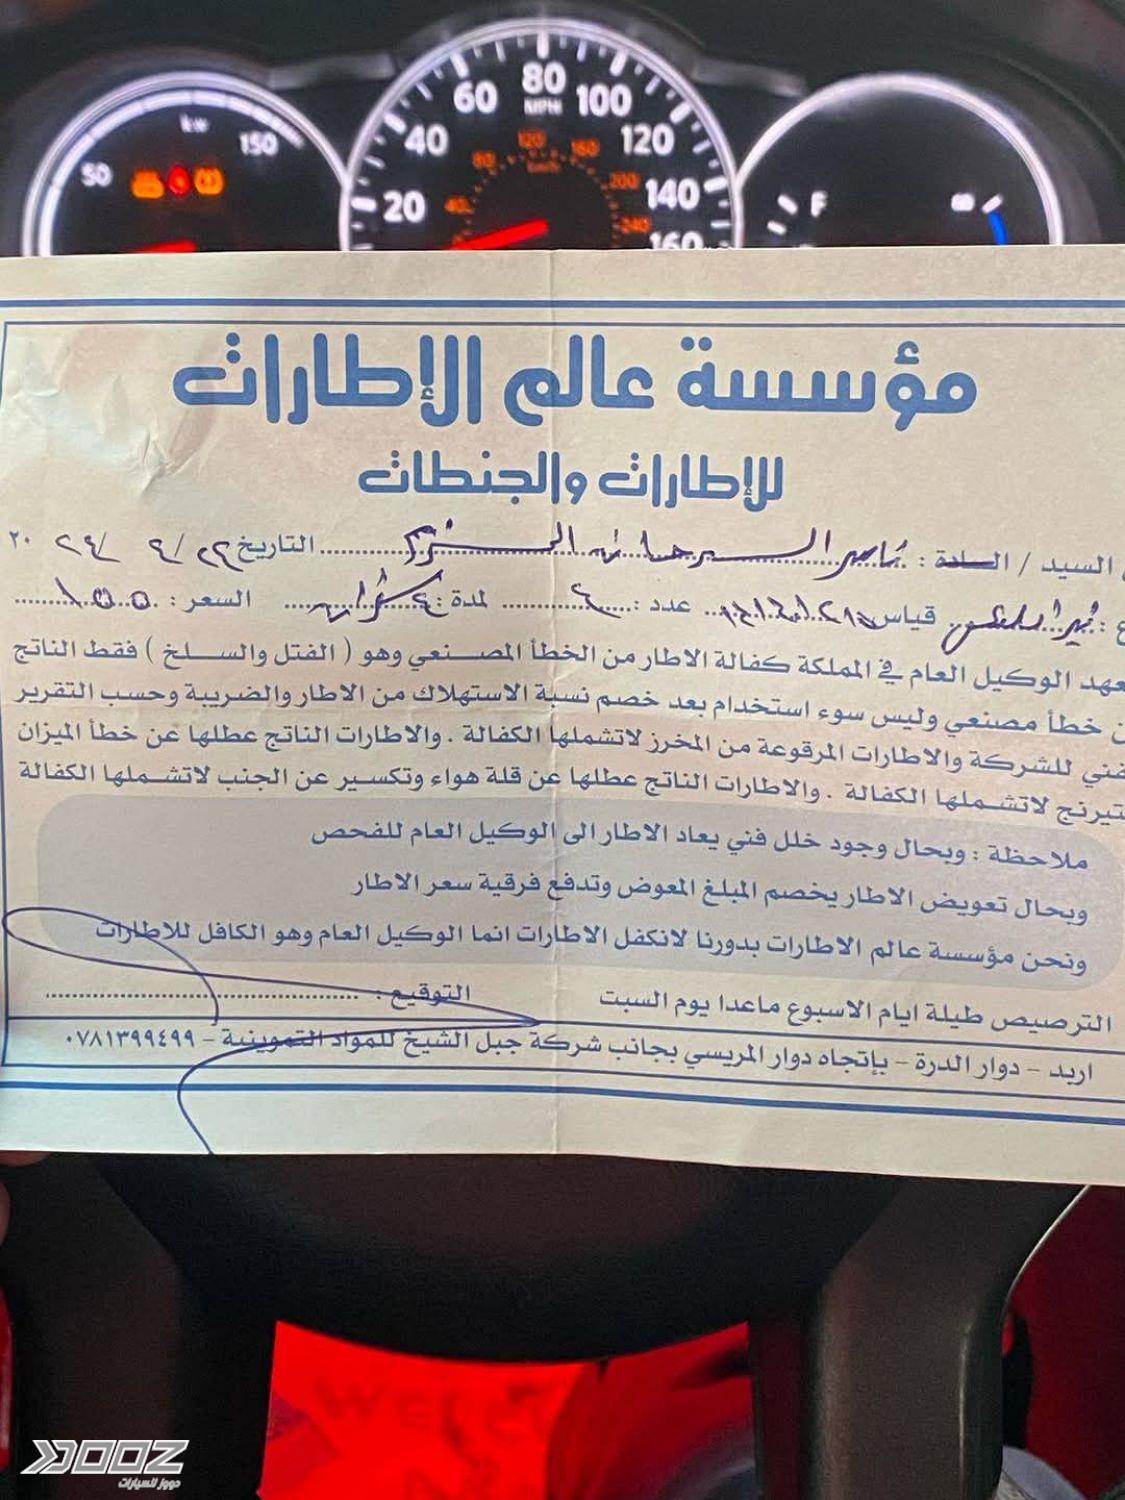 kw
50
150
20
40
60
80
100
120
140
160
MPH
40
80
120
160
200
240
km/h
F
مؤسسة عالم الإطارات
للإطارات والجنطات
السيد / السادة : ناصر السرحان التاريخ ٢٢ / ٩ / ٢٠٢٤
قياس عدد : ٤ لمدة : ٤ سنوات السعر : ١٥٥
عهد الوكيل العام في المملكة كفالة الاطار من الخطأ المصنعي وهو ( الفتل والسلخ ) فقط الناتج
خطأ مصنعي وليس سوء استخدام بعد خصم نسبة الاستهلاك من الاطار والضريبة وحسب التقرير
فني للشركة والاطارات المرقوعة من المخرز لاتشملها الكفالة . والاطارات الناتج عطلها عن خطأ الميزان
تيرنج لاتشملها الكفالة . والاطارات الناتج عطلها عن قلة هواء وتكسير عن الجنب لاتشملها الكفالة
ملاحظة : وبحال وجود خلل فني يعاد الاطار الى الوكيل العام للفحص
وبحال تعويض الاطار يخصم المبلغ المعوض وتدفع فرقية سعر الاطار
ونحن مؤسسة عالم الاطارات بدورنا لانكفل الاطارات انما الوكيل العام وهو الكافل للاطارات
الترصيص طيلة ايام الاسبوع ماعدا يوم السبت التوقيع :
اربد - دوار الدرة - بإتجاه دوار المريسي بجانب شركة جبل الشيخ للمواد التموينية - ٠٧٨١٣٩٩٤٩٩
DOOZ
دووز للسيارات